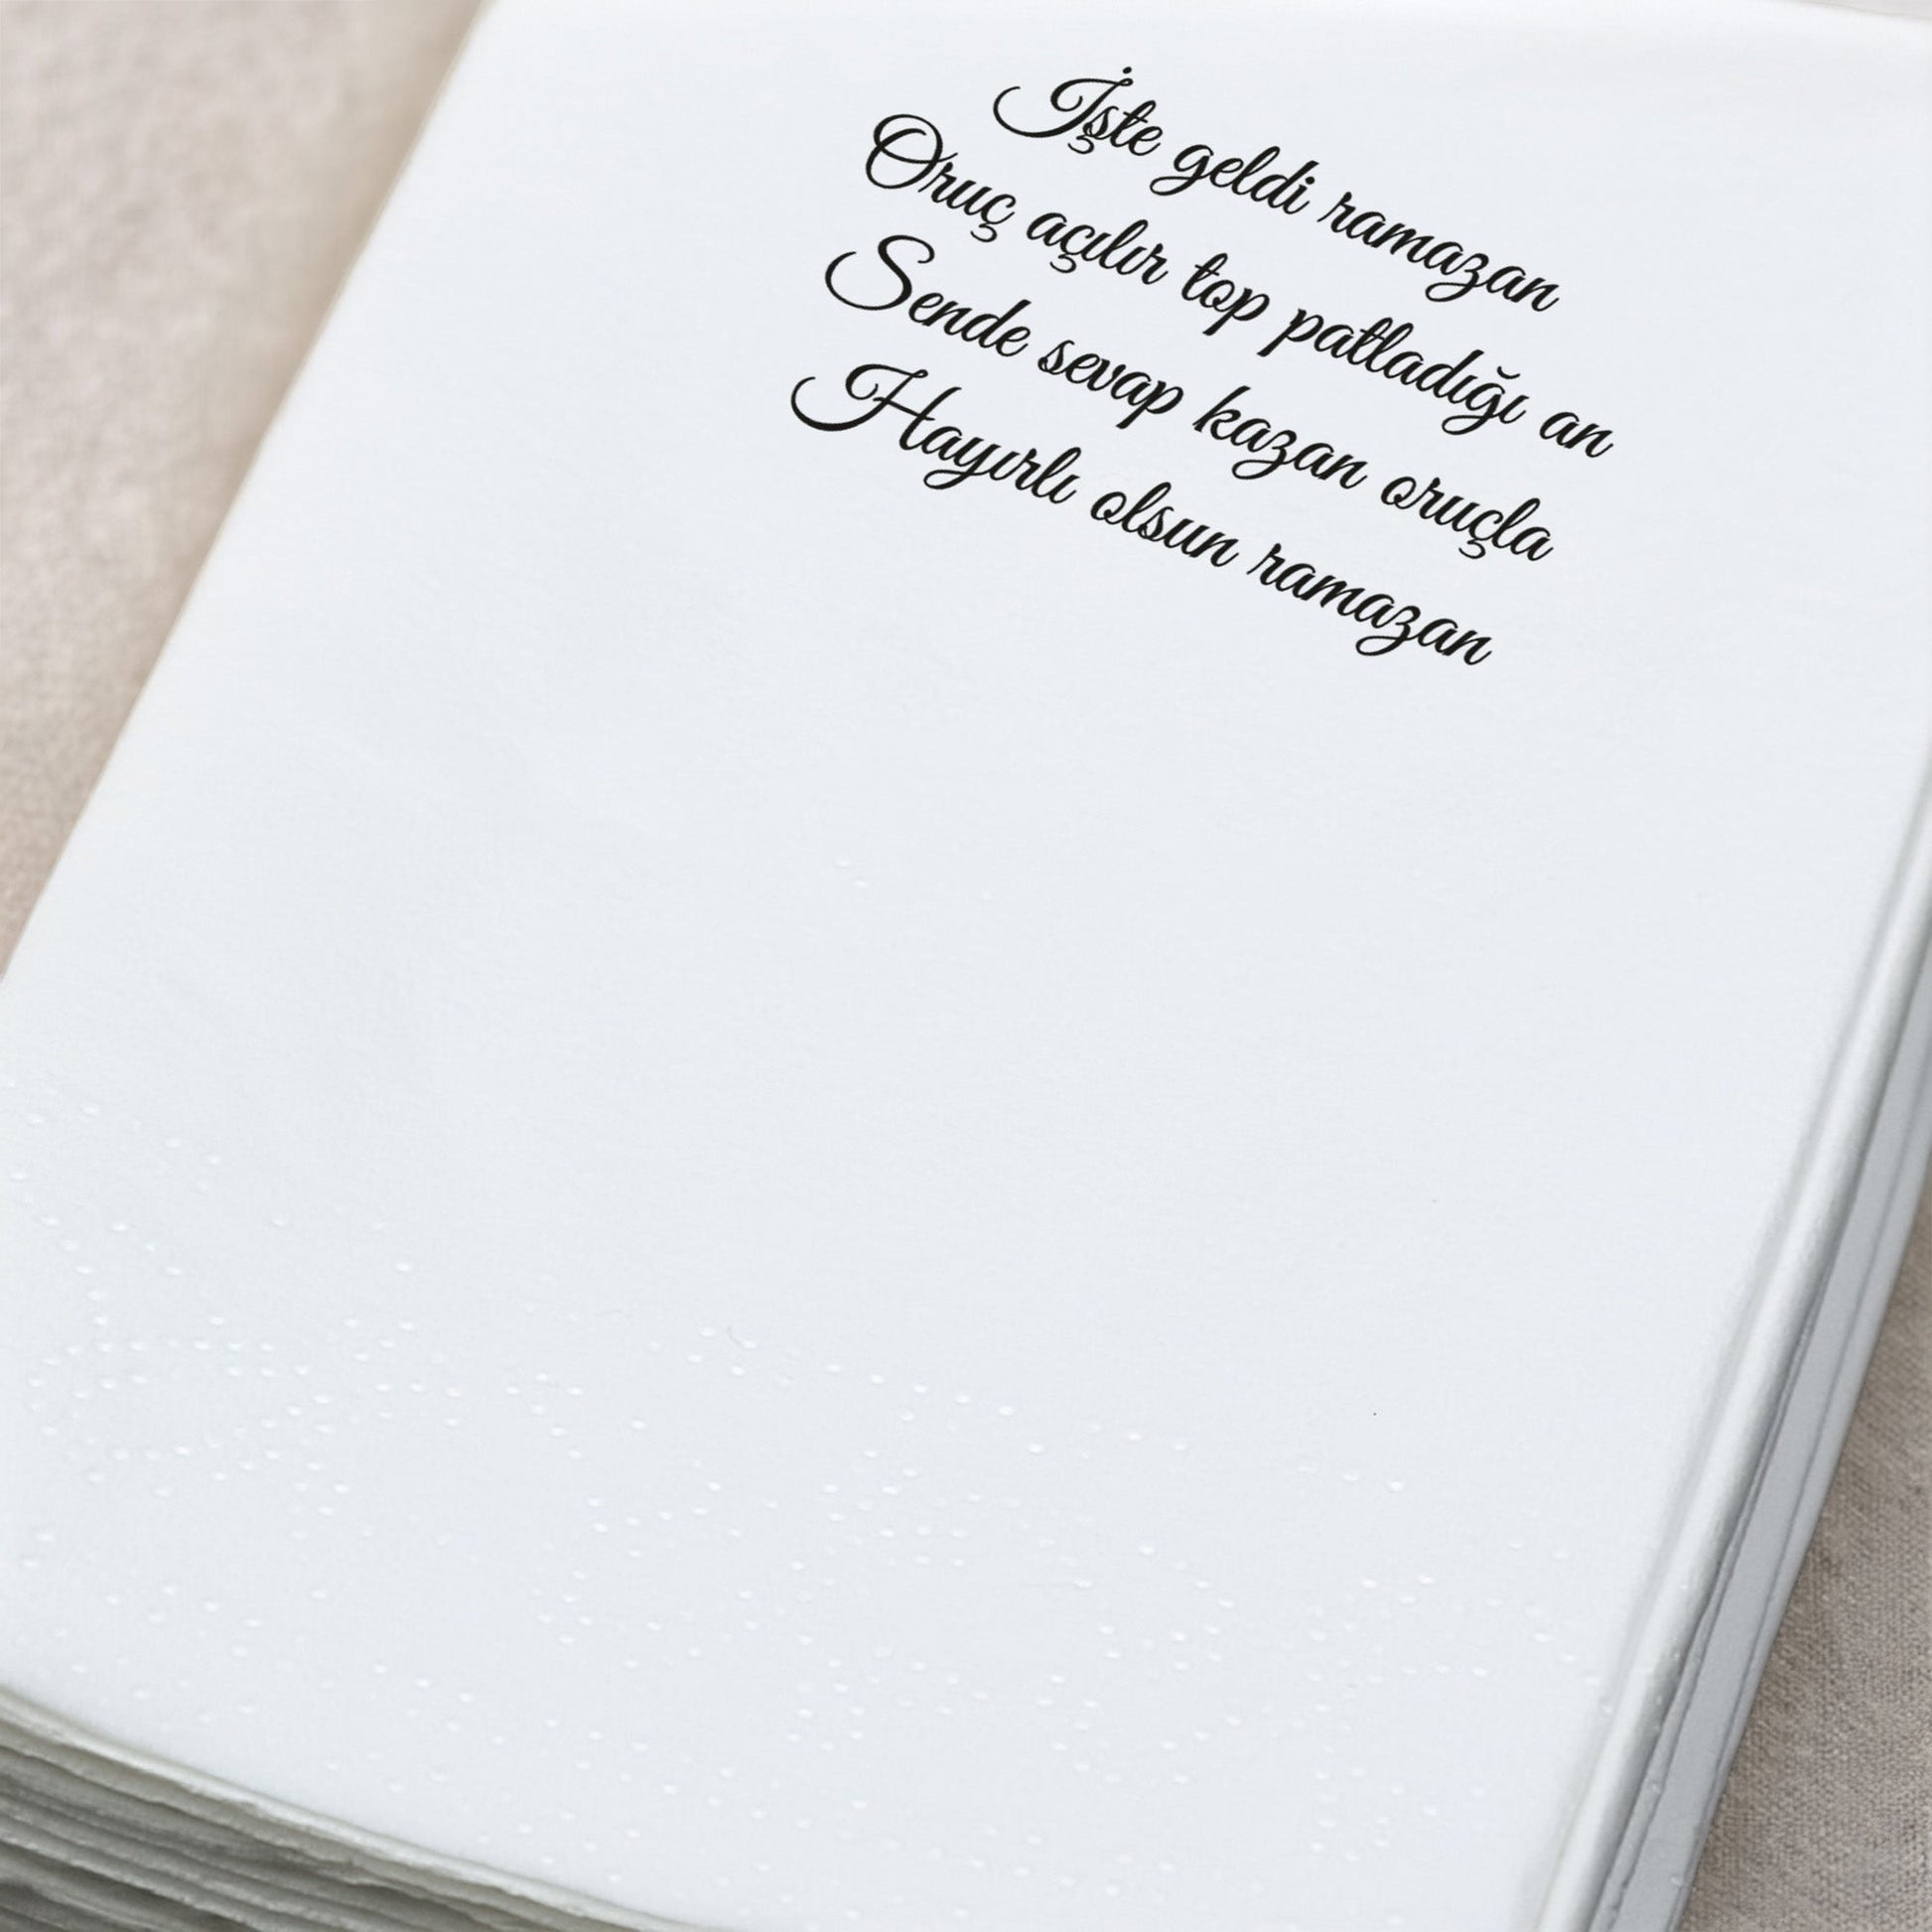 İşte geldi ramazan
Oruç açılır top patladığı an
Sende sevap kazan oruçla
Hayırlı olsun ramazan